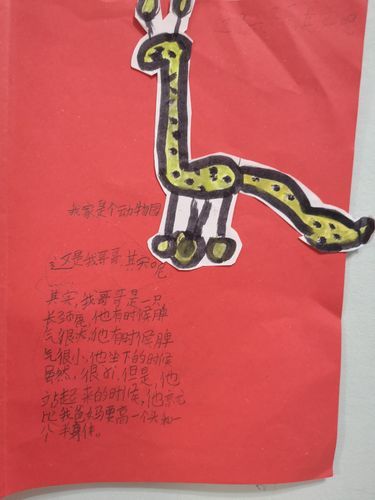 我家是个动物园
这是我哥哥,其实呢
其实,我哥哥是一只
长颈鹿,他有时候脾
气很大,他有时候脾
气很小,他坐下的时候
虽然,很小,但是,他
站起来的时候,他
比我爸妈要高一个头和一
个半身体。